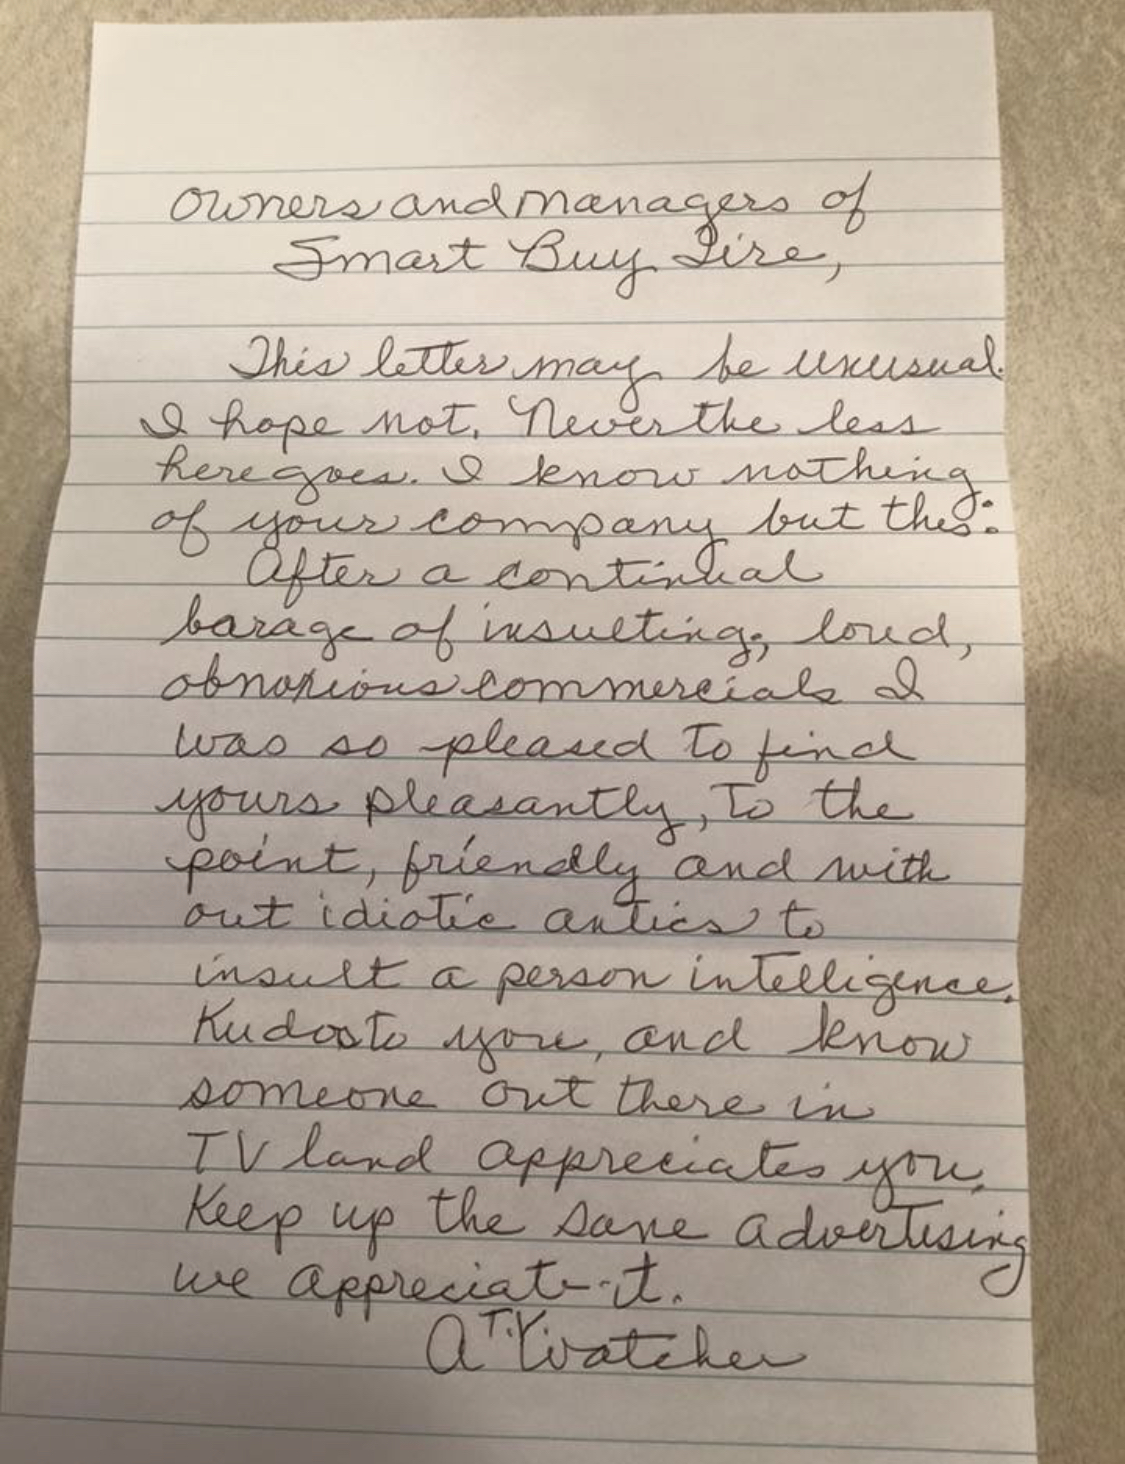 owners and managers of
Smart Buy Tire,
This letter may be unusual.
I hope not. Never the less
here goes. I know nothing
of your company but this:
After a continual
barage of insulting, loud,
obnoxious commercials I
was so pleased to find
yours pleasantly, to the
point, friendly and with
out idiotic antics to
insult a person intelligence.
Kudos to you, and know
someone out there in
TV land appreciates you.
Keep up the sane advertising
we appreciate it.
A T.V. Watcher